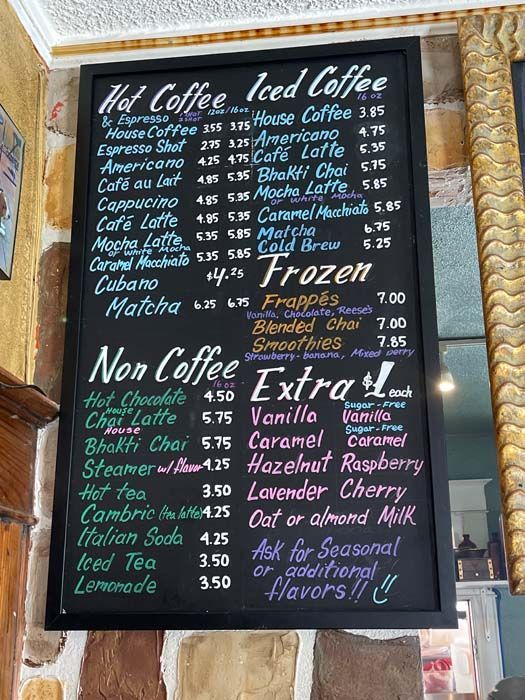 Hot Coffee
& Espresso 1 SHOT 2 SHOT 12oz/16oz
House Coffee 3.55 3.75
Espresso Shot 2.75 3.25
Americano 4.25 4.75
Café au Lait 4.85 5.35
Cappucino 4.85 5.35
Café Latte 4.85 5.35
Mocha Latte 5.35 5.85
or White Mocha
Caramel Macchiato 5.35 5.85
Cubano $4.25
Matcha 6.25 6.75
Non Coffee
16 oz
Hot Chocolate 4.50
House
Chai Latte 5.75
House
Bhakti Chai 5.75
Steamer w/ flavor 4.25
Hot tea 3.50
Cambric (tea latte) 4.25
Italian Soda 4.25
Iced Tea 3.50
Lemonade 3.50
Iced Coffee
16 oz
House Coffee 3.85
Americano 4.75
Café Latte 5.35
Bhakti Chai 5.75
Mocha Latte 5.85
or White Mocha
Caramel Macchiato 5.85
Matcha 6.75
Cold Brew 5.25
Frozen
Frappés 7.00
Vanilla, Chocolate, Reese's
Blended Chai 7.00
Smoothies 7.85
Strawberry-banana, Mixed berry
Extra $1 each
Vanilla
Caramel
Sugar-Free
Vanilla
Sugar-Free
Caramel
Hazelnut Raspberry
Lavender Cherry
Oat or almond Milk
Ask for Seasonal
or additional
flavors!!